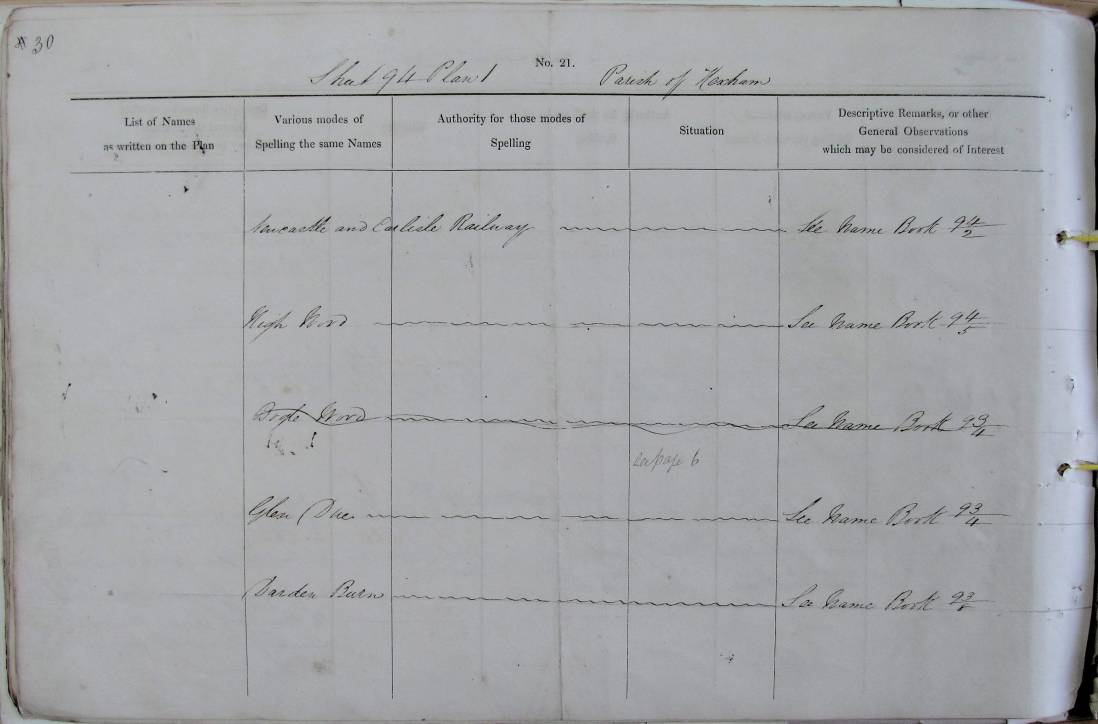 30
No. 21.
Sheet 94 Plan 1 Parish of Hexham
List of Names
as written on the Plan
Various modes of
Spelling the same Names
Authority for those modes of
Spelling
Situation
Descriptive Remarks, or other
General Observations
which may be considered of Interest
Newcastle and Carlisle Railway See Name Book 94/2
High Wood See Name Book 94/5
Bogle Wood See Name Book 93/4
see page 6
Glen Due See Name Book 93/4
Darden Burn See Name Book 93/8